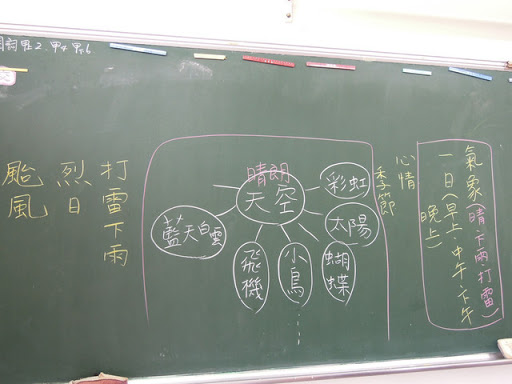 颱風
烈日
打雷下雨
晴朗
天空
彩虹
太陽
蝴蝶
小鳥
飛機
藍天白雲
季節
心情
氣象(晴、下雨、打雷)
一日(早上、中午、下午
晚上)